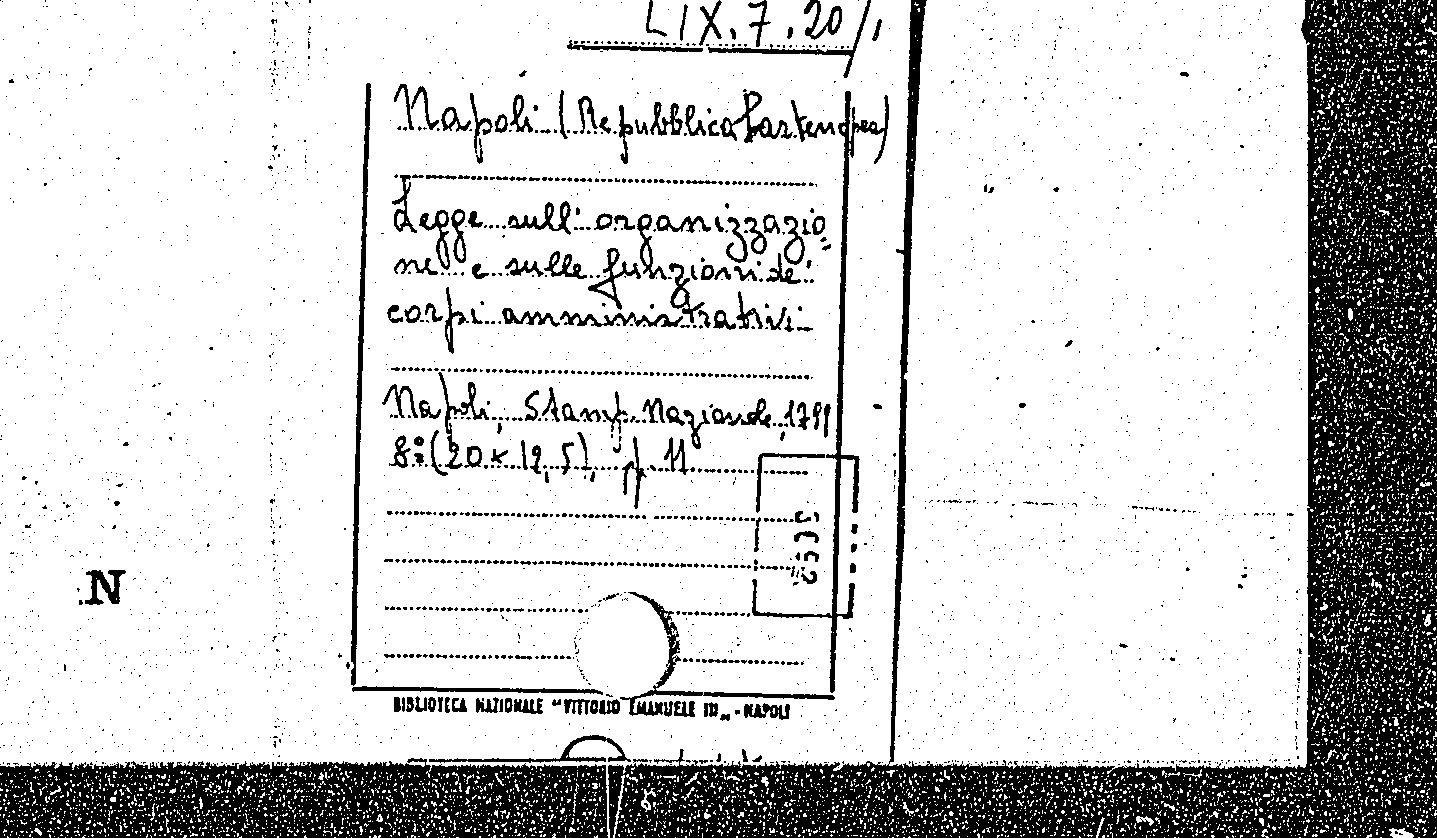 LIX.7.20/1
Napoli (Repubblica Partenopea)
Legge sull'organizzazio=
ne e sulle funzioni de'
corpi amministrativi
Napoli, Stamp. Nazionale, 1799
8º (20 x 12,5), pp. 11
N
BIBLIOTECA NAZIONALE "VITTORIO EMANUELE III„ - NAPOLI